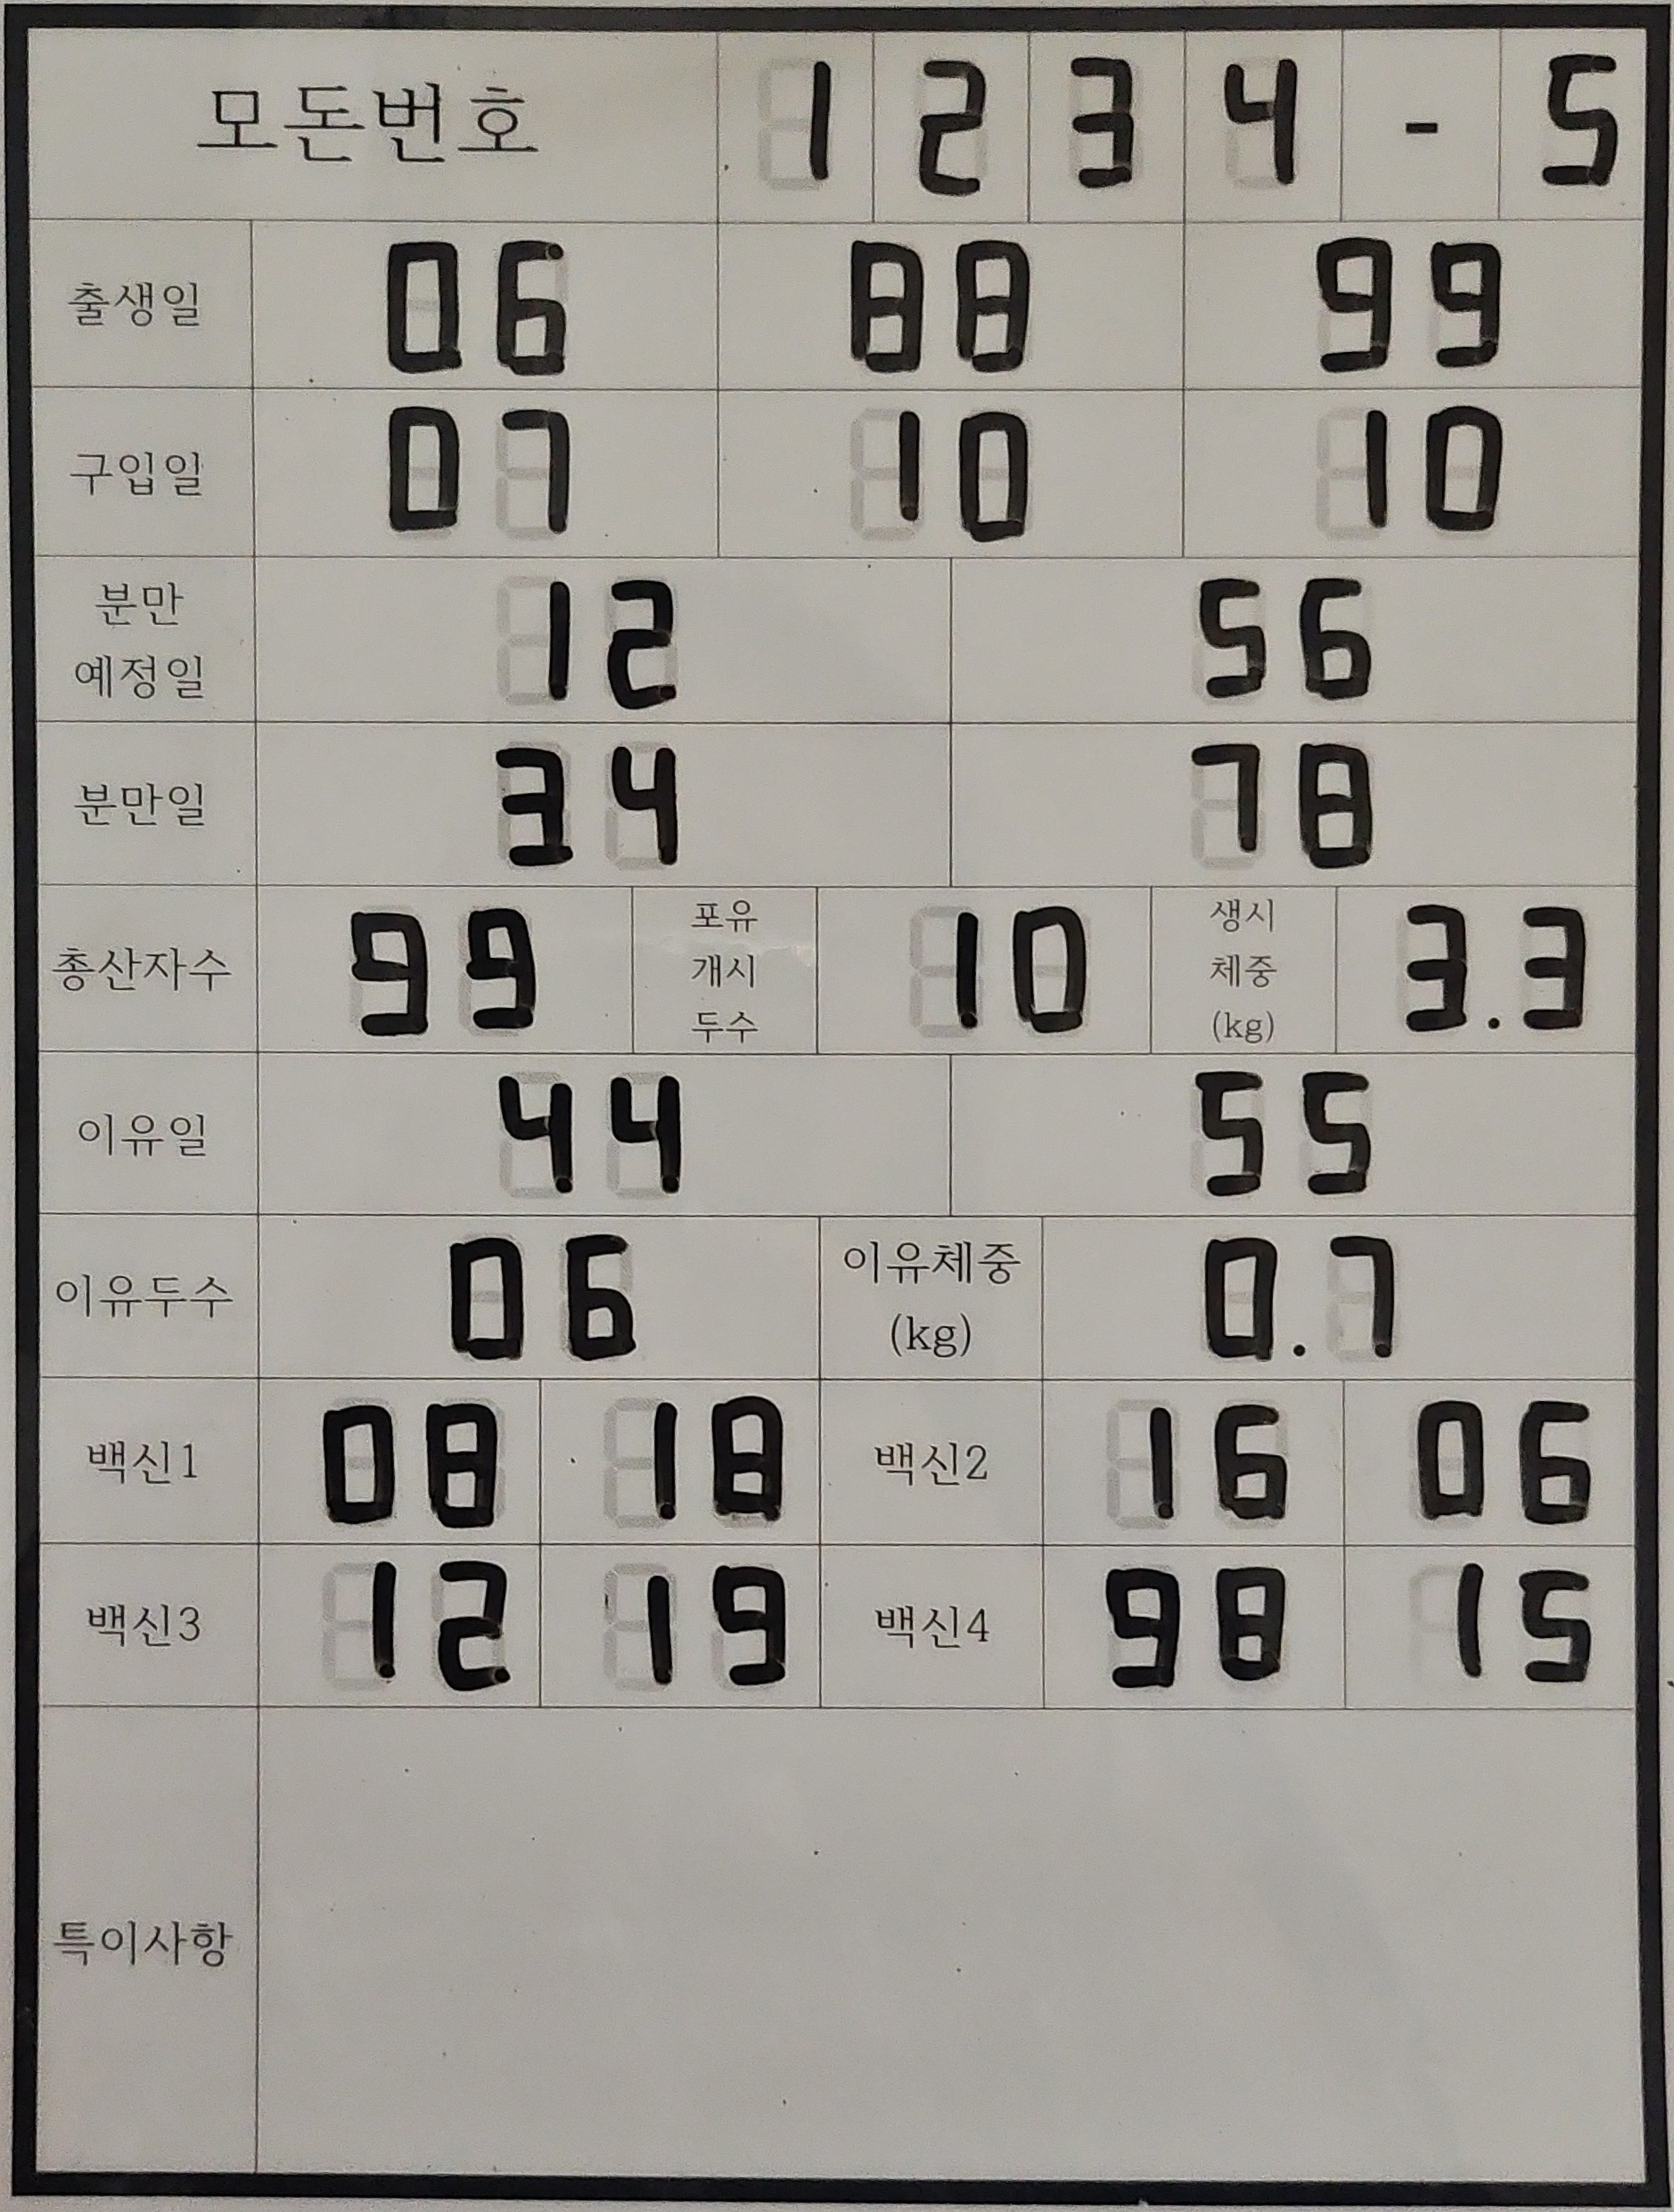 모돈번호 1 2 3 4 - 5
출생일 06 88 99
구입일 07 10 10
분만
예정일 12 56
분만일 34 78
총산자수 99 포유
개시
두수 10 생시
체중
(kg) 3.3
이유일 44 55
이유두수 06 이유체중
(kg) 0.7
백신1 08 18 백신2 16 06
백신3 12 19 백신4 98 15
특이사항